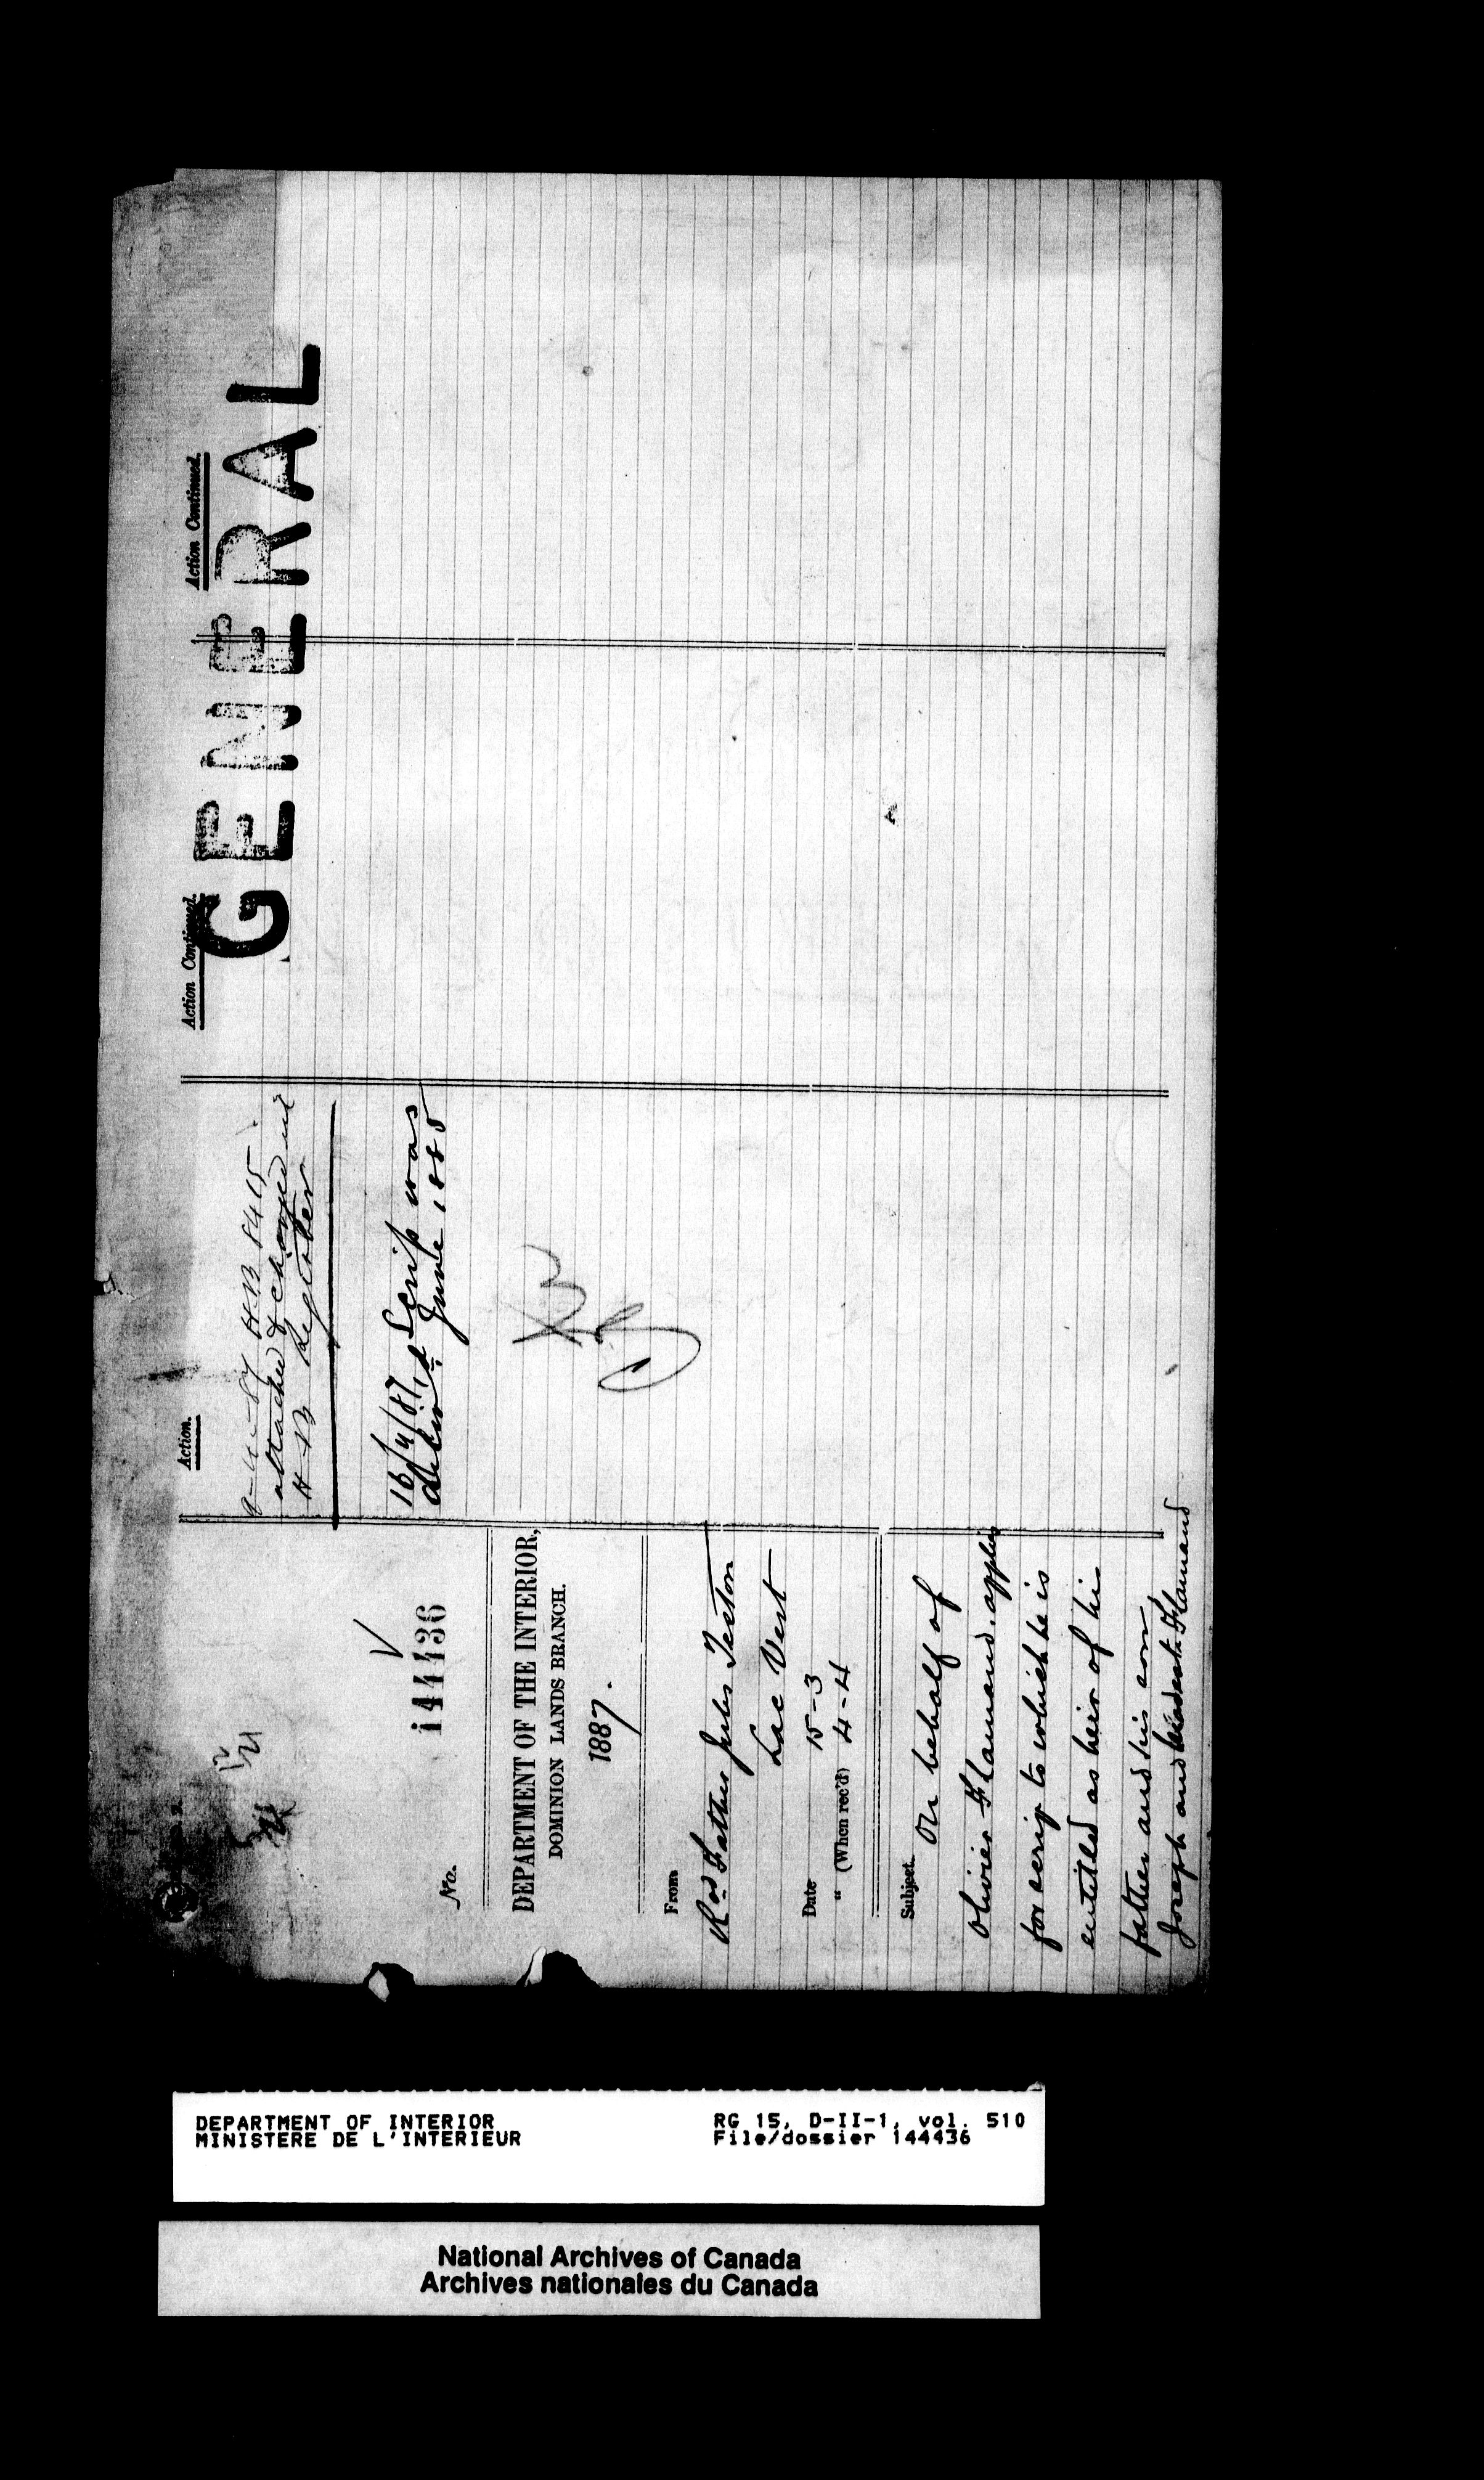 144436
No.
DEPARTMENT OF THE INTERIOR,
DOMINION LANDS BRANCH.
1887.
From
Rev Father Jules Teston
Lac Vert
Date 15-3
" (When rec'd) 4-4
Subject.
On behalf of
Olivier Flamand. applies
for scrip to which he is
entitled as heir of his
father and his son
Joseph and Flamand
Action.
HB 8415
attached & changed in
HB Register
16/4/87, Scrip was
deliv'd June 1885
Action Continued.
Action Continued.
GENERAL
DEPARTMENT OF INTERIOR
MINISTERE DE L'INTERIEUR
RG 15, D-II-1, vol. 510
File/dossier 144436
National Archives of Canada
Archives nationales du Canada